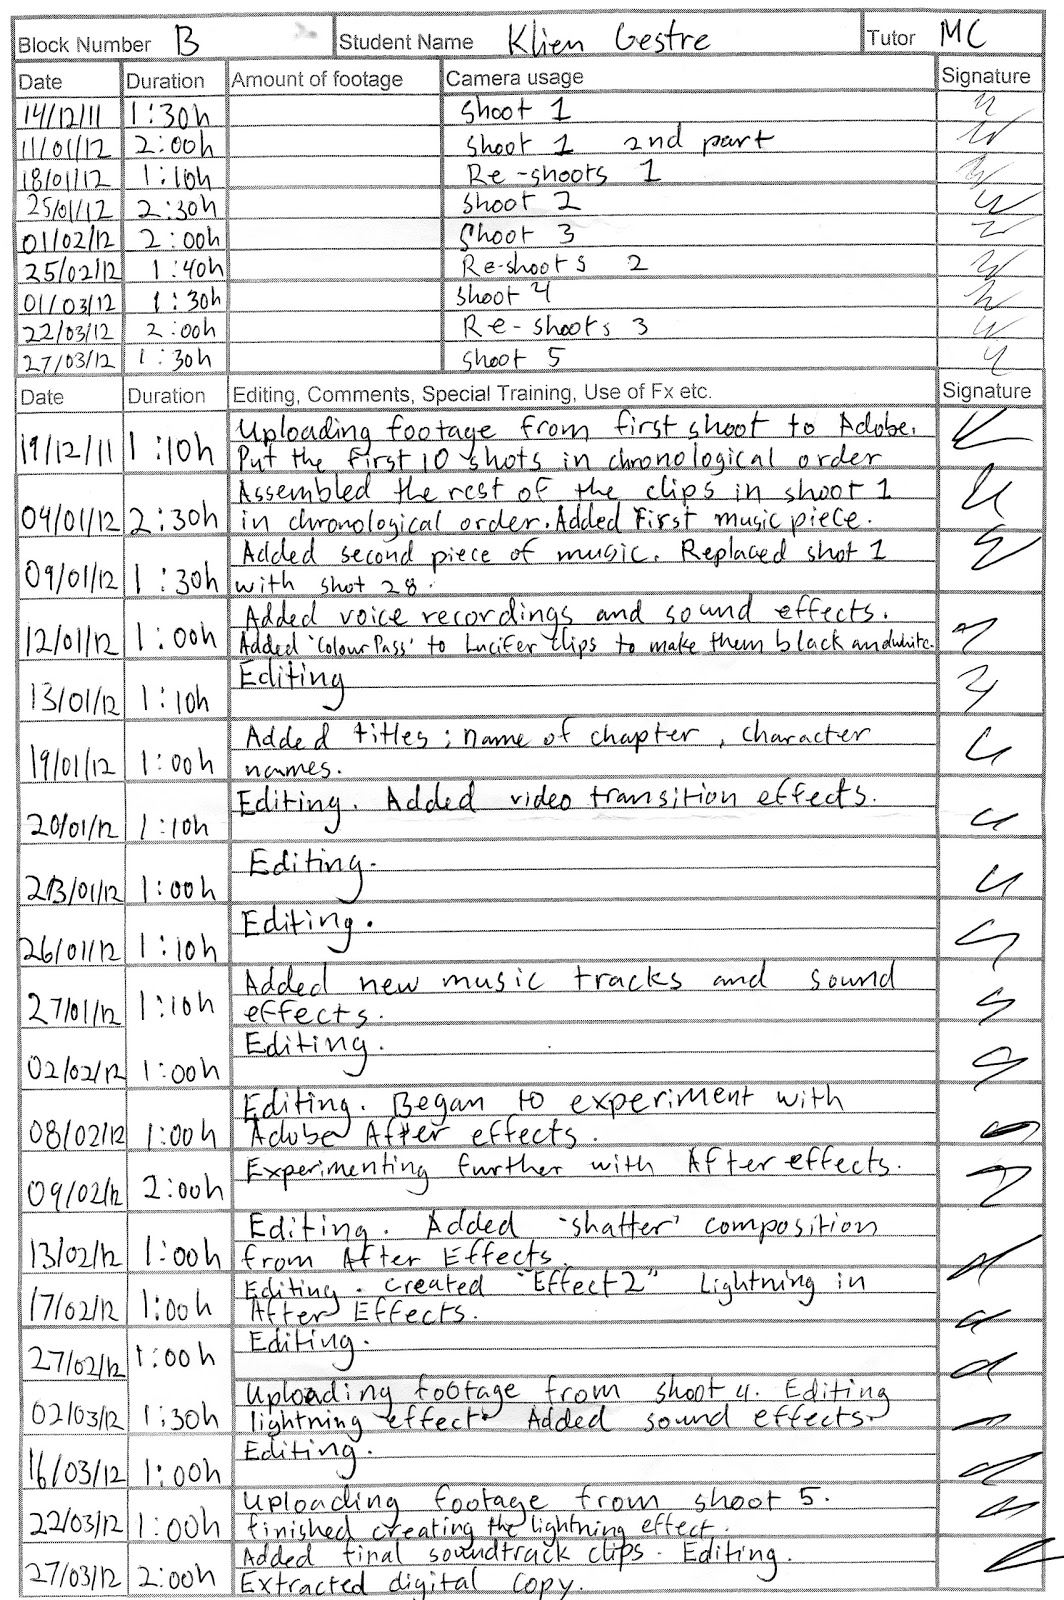 Block Number B Student Name Klien Gestre Tutor MC
Date Duration Amount of footage Camera usage Signature
14/12/11 1:30h shoot 1
11/01/12 2:00h shoot 1 2nd part
18/01/12 1:10h Re-shoots 1
25/01/12 2:30h shoot 2
01/02/12 2:00h Shoot 3
25/02/12 1:40h Re-shoots 2
01/03/12 1:30h shoot 4
22/03/12 2:00h Re-shoots 3
27/03/12 1:30h shoot 5
Date Duration Editing, Comments, Special Training, Use of Fx etc. Signature
Uploading footage from first shoot to Adobe.
19/12/11 1:10h Put the first 10 shots in chronological order
Assembled the rest of the clips in shoot 1
04/01/12 2:30h in chronological order. Added first music piece.
Added second piece of music. Replaced shot 1
09/01/12 1:30h with shot 28.
Added voice recordings and sound effects.
12/01/12 1:00h Added 'Colour Pass' to Lucifer clips to make them black and white.
Editing
13/01/12 1:10h
Added titles; name of chapter, character
19/01/12 1:00h names.
Editing. Added video transition effects.
20/01/12 1:10h
Editing.
23/01/12 1:00h
Editing.
26/01/12 1:10h
Added new music tracks and sound
27/01/12 1:10h effects.
Editing.
02/02/12 1:00h
Editing. Began to experiment with
08/02/12 1:00h Adobe After effects.
Experimenting further with After effects.
09/02/12 2:00h
Editing. Added 'shatter' composition
13/02/12 1:00h from After Effects.
Editing. created "Effect 2" Lightning in
17/02/12 1:00h After Effects.
Editing.
27/02/12 1:00h
Uploading footage from shoot 4. Editing
02/03/12 1:30h lightning effect. Added sound effects.
Editing.
16/03/12 1:00h
Uploading footage from shoot 5.
22/03/12 1:00h finished creating the lightning effect.
Added final soundtrack clips. Editing.
27/03/12 2:00h Extracted digital copy.